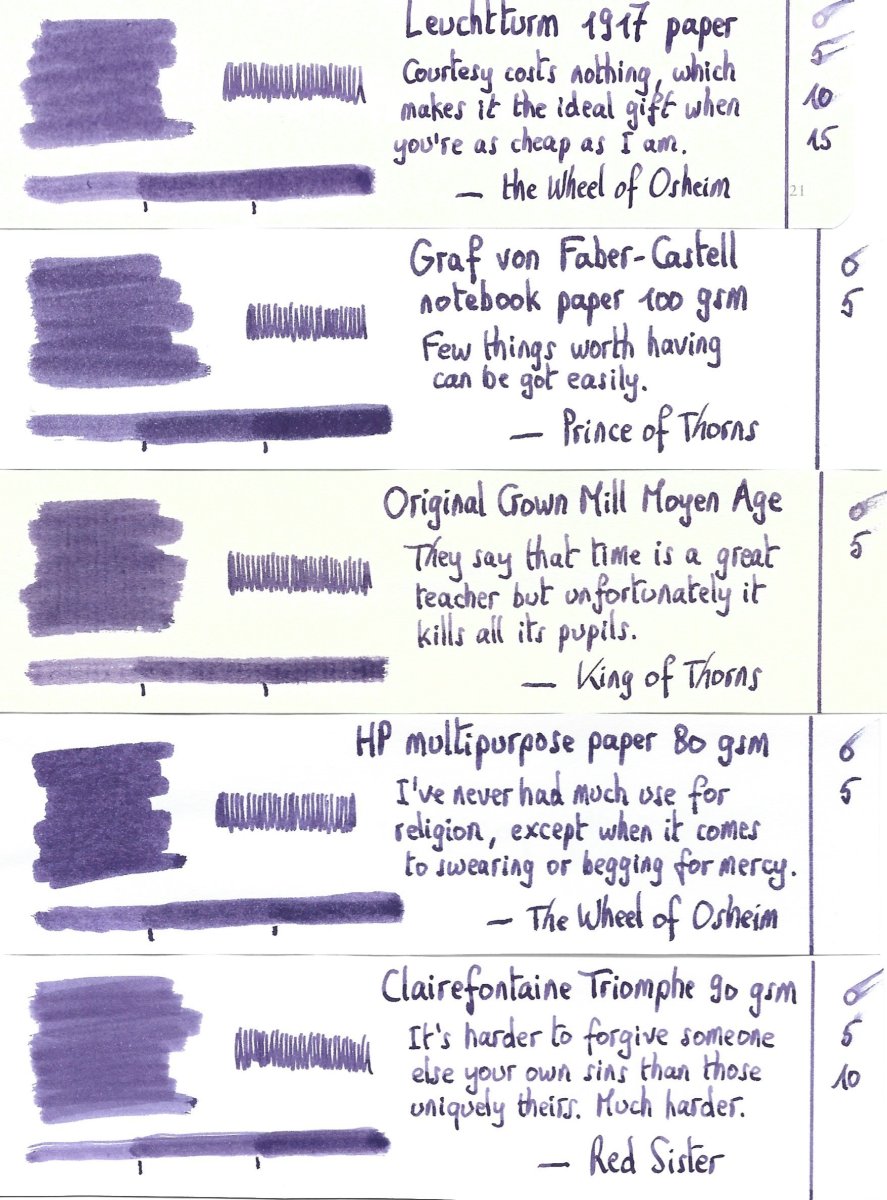 Leuchtturm 1917 paper
Courtesy costs nothing, which
makes it the ideal gift when
you're as cheap as I am.
— the Wheel of Osheim
0
5
10
15
21
Graf von Faber-Castell
notebook paper 100 gsm
Few things worth having
can be got easily.
— Prince of Thorns
0
5
Original Crown Mill Moyen Age
They say that time is a great
teacher but unfortunately it
kills all its pupils.
— King of Thorns
0
5
HP multipurpose paper 80 gsm
I've never had much use for
religion, except when it comes
to swearing or begging for mercy.
— The Wheel of Osheim
0
5
Clairefontaine Triomphe 90 gsm
It's harder to forgive someone
else your own sins than those
uniquely theirs. Much harder.
— Red Sister
0
5
10